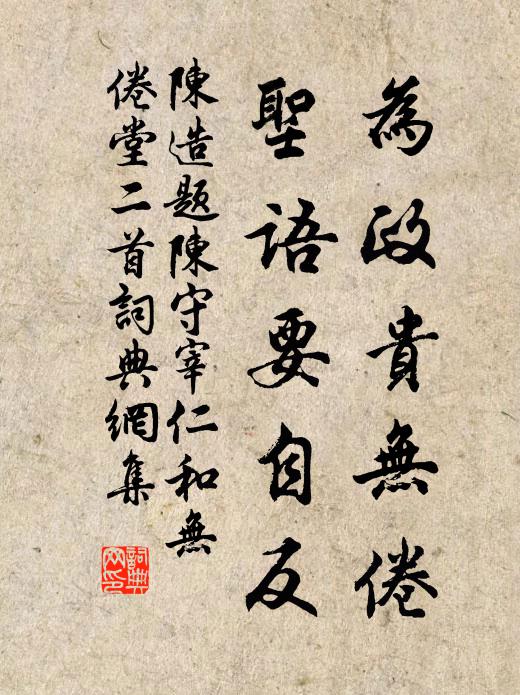 為政貴無倦
聖語要自反
陳造題陳守宰仁和無
倦堂二首詞典網集
詞典網印